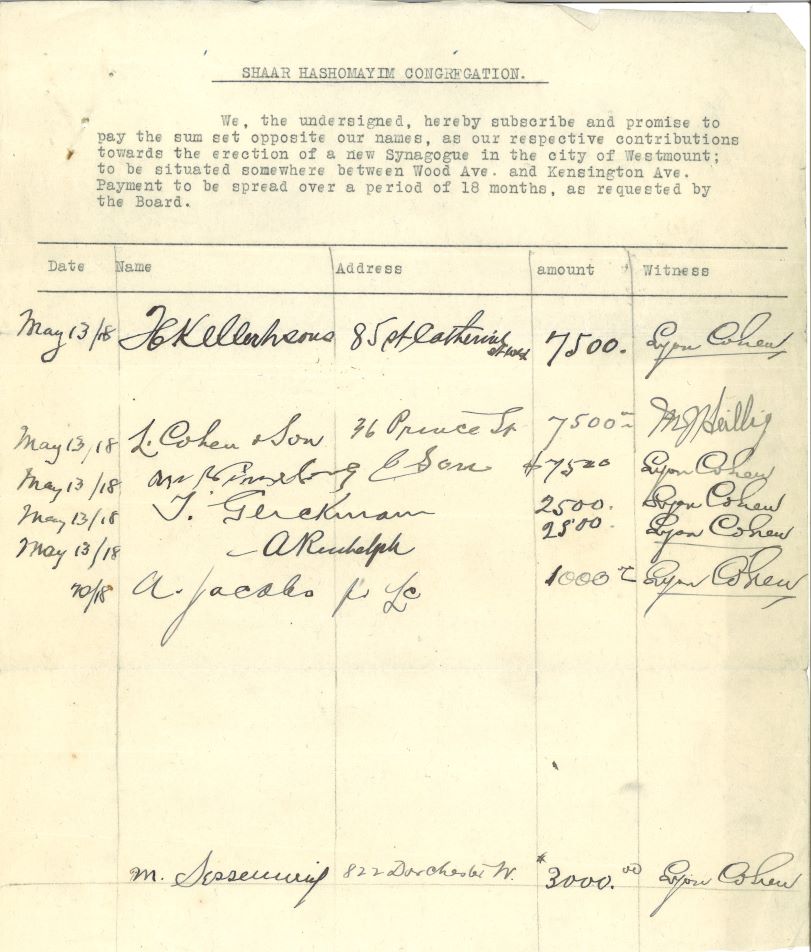 SHAAR HASHOMAYIM CONGREGATION.
We, the undersigned, hereby subscribe and promise to
pay the sum set opposite our names, as our respective contributions
towards the erection of a new Synagogue in the city of Westmount;
to be situated somewhere between Wood Ave. and Kensington Ave.
Payment to be spread over a period of 18 months, as requested by
the Board.
Date Name Address amount Witness
May 13/18 H Kellert & sons 85 St Catherine St West 7500. Lyon Cohen
May 13/18 L. Cohen & Son 36 Prince St 7500 Lyon Cohen
May 13/18 & Son $7500 Lyon Cohen
May 13/18 Gerckman 2500. Lyon Cohen
May 13/18 A Rudolph 2500. Lyon Cohen
/18 A. Jacobs 1000 Lyon Cohen
M. 822 Dorchester W. $3000.00 Lyon Cohen